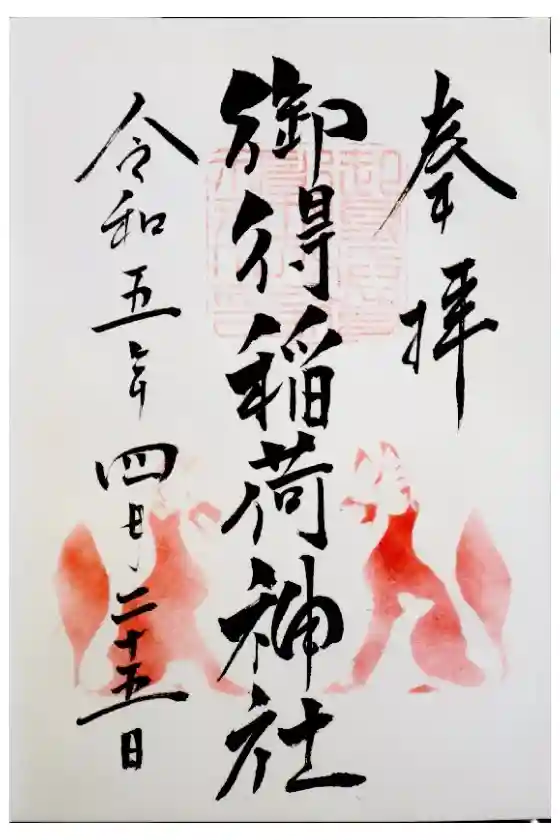 奉拝
御得稲荷神社
令和五年四月二十五日